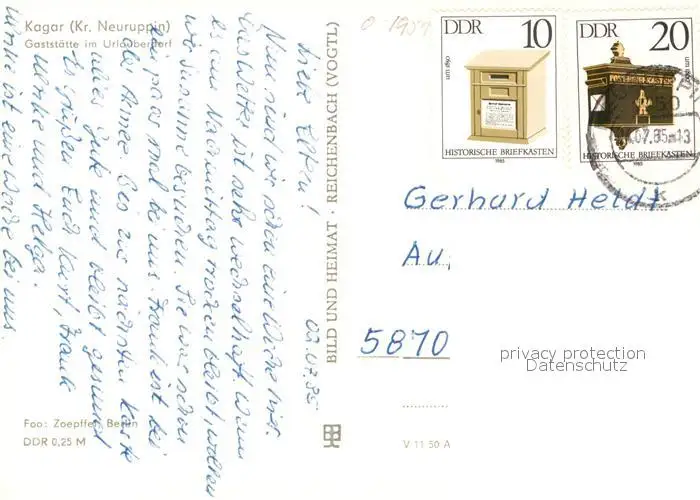 Kagar (Kr. Neuruppin)
Gaststätte im Urlauberdorf
Foto: Zoepffer, Berlin
DDR 0,25 M
BILD UND HEIMAT · REICHENBACH (VOGTL)
V 11 50 A
03.07.85
Liebe Eltern!
Nun sind wir schon eine Woche hier.
Das Wetter ist sehr wechselhaft. Wenn
es am Nachmittag trocken bleibt, wollen
wir Susanne besuchen. Sie war schon
ein paar mal bei uns. Frank ist bei
der Armee. Bis zur nächsten Karte
alles Gute und bleibt gesund
Es grüßen Euch Kurt, Frank
und Helga.
ist eine bei uns.
o 1957
DDR 10
um 1860
HISTORISCHE BRIEFKASTEN
1985
DDR 20
um 18
POSTBRIEFKASTEN
HISTORISCHE BRIEFKASTEN
1985
07.85-13
Gerhard Heldt
Au,
5870
privacy protection
Datenschutz